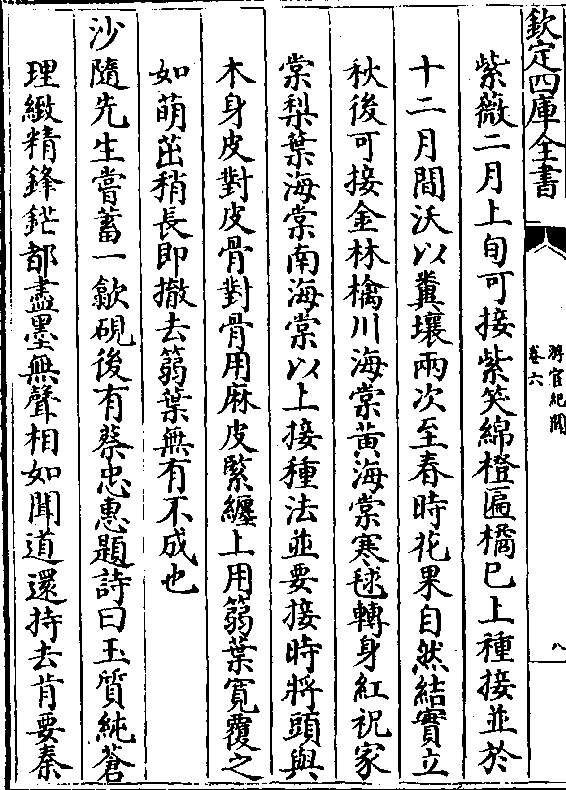 欽定四庫全書
游宦紀聞
卷六
八
紫薇二月上旬可接紫笑綿橙匾橘已上種接並於
十二月間沃以糞壤兩次至春時花果自然結實立
秋後可接金林檎川海棠黄海棠寒毬轉身紅祝家
棠梨葉海棠南海棠以上接種法並要接時將頭與
木身皮對皮骨對骨用麻皮緊纏上用篛葉寛覆之
如萌茁稍長即撤去篛葉無有不成也
沙隨先生嘗蓄一歙硯後有蔡忠惠題詩曰玉質純蒼
理緻精鋒鋩都盡墨無聲相如聞道還持去肯要秦